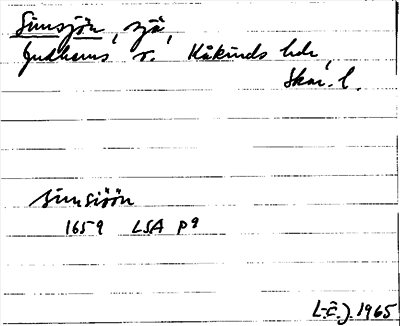 Simsjön, sjö,
Gudhems, s. Kåkinds hd,
Skar. l.
Simsiöön
1659 LSA P9
L-E.J. 1965